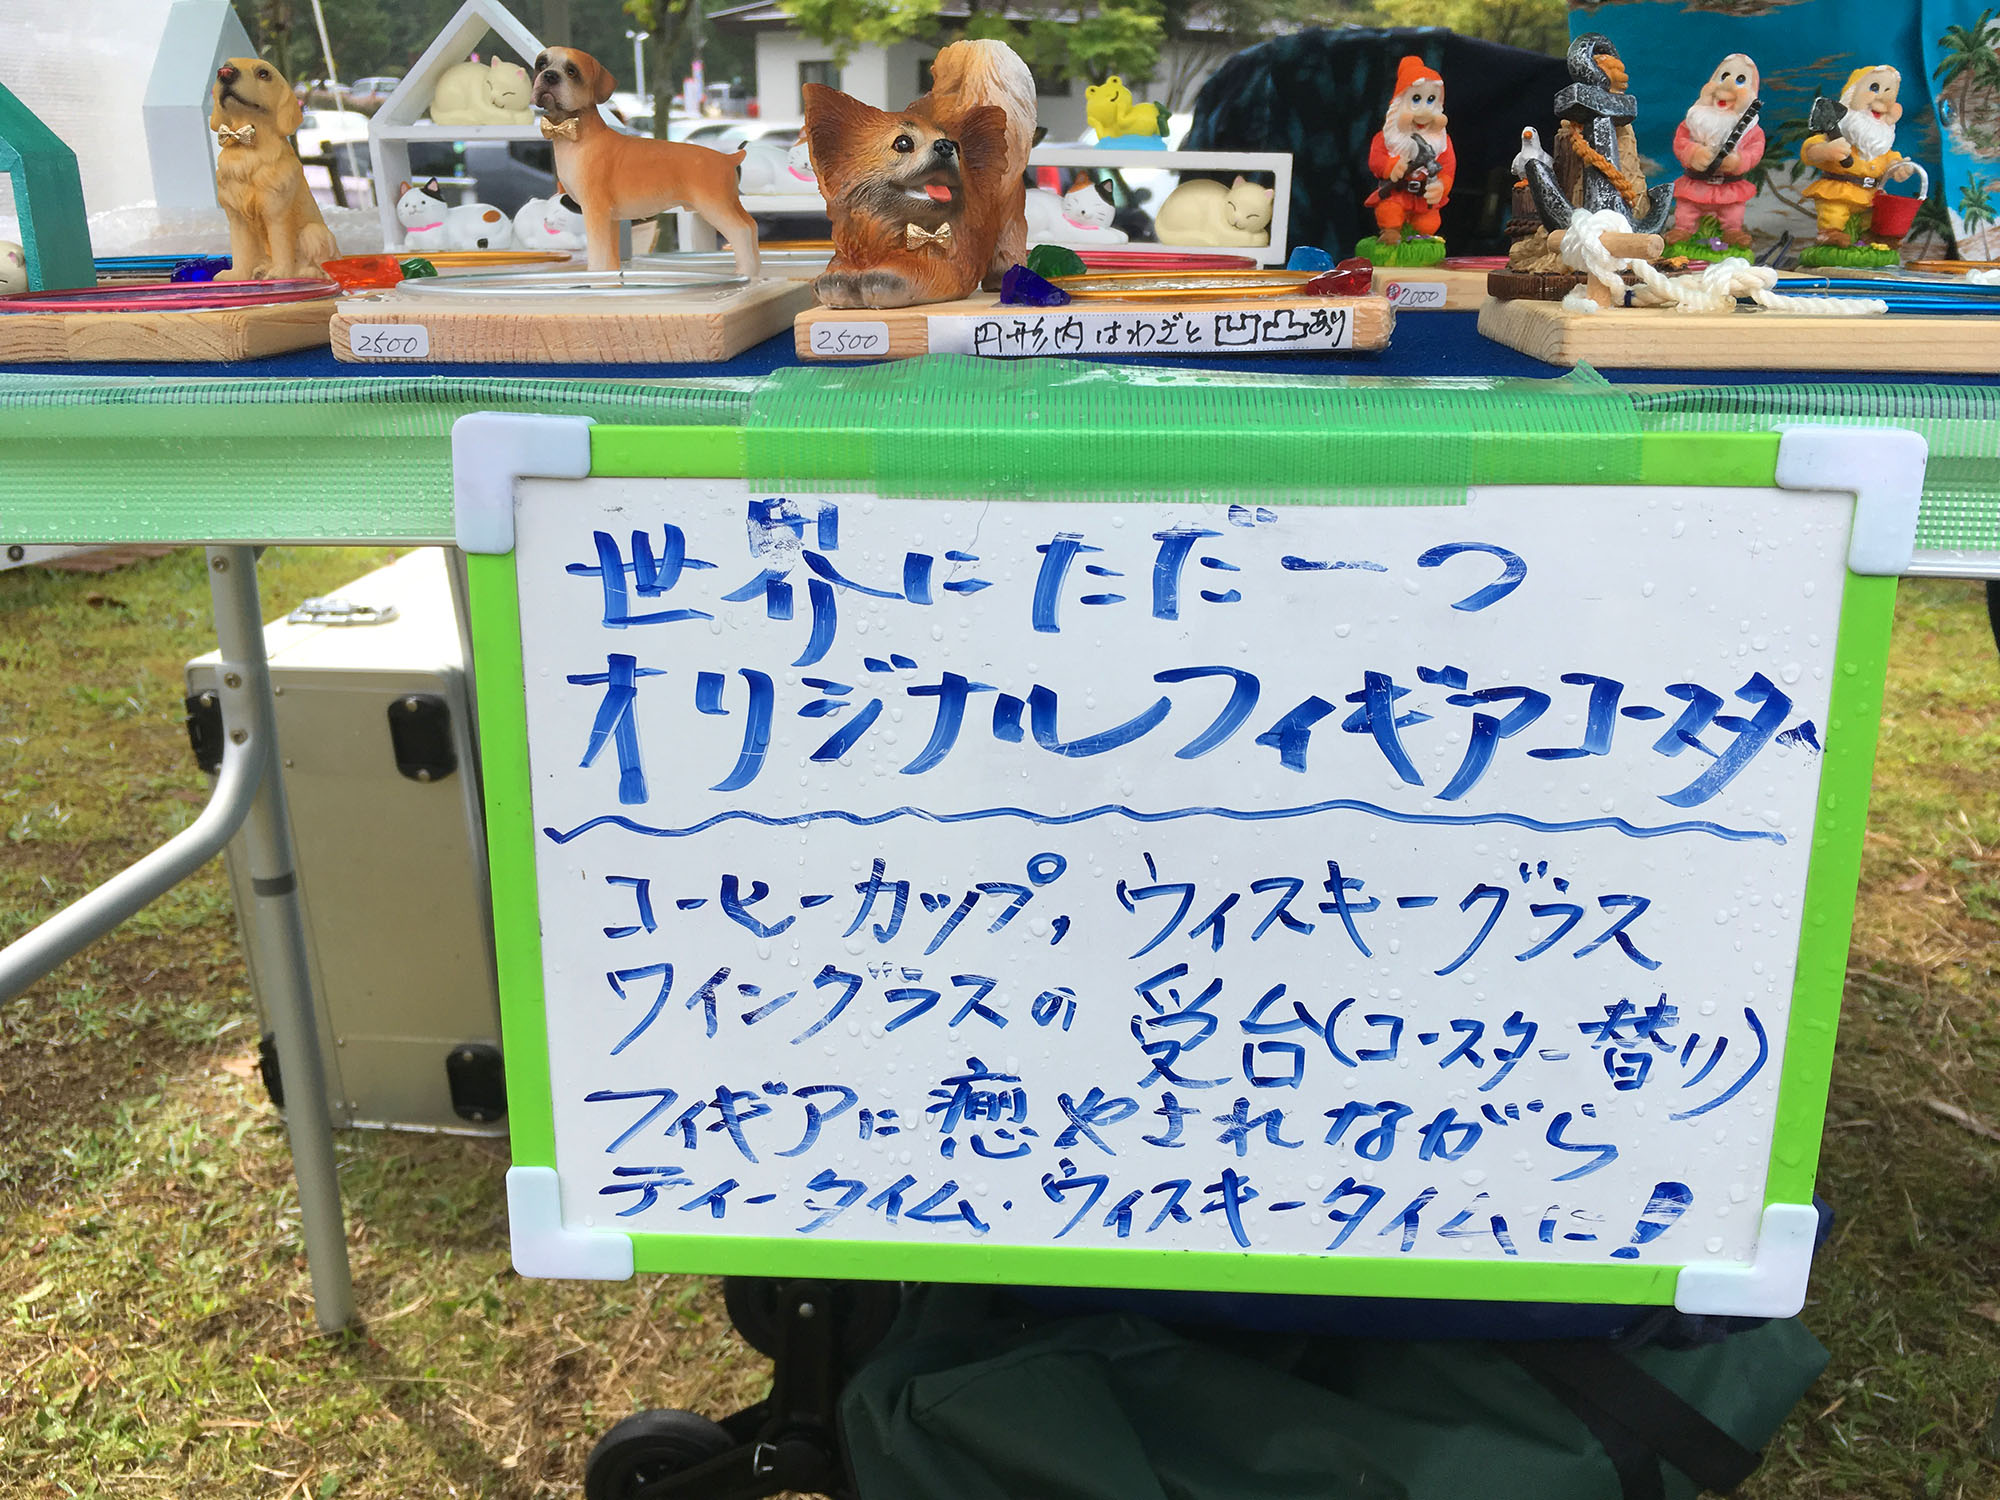 2500
2500
円形内はわざと凹凸あり
2000
世界にただ一つ
オリジナルフィギアコースター
コーヒーカップ,ウィスキーグラス
ワイングラスの受台(コースター替り)
フィギアに癒やされながら
ティータイム・ウィスキータイムに!